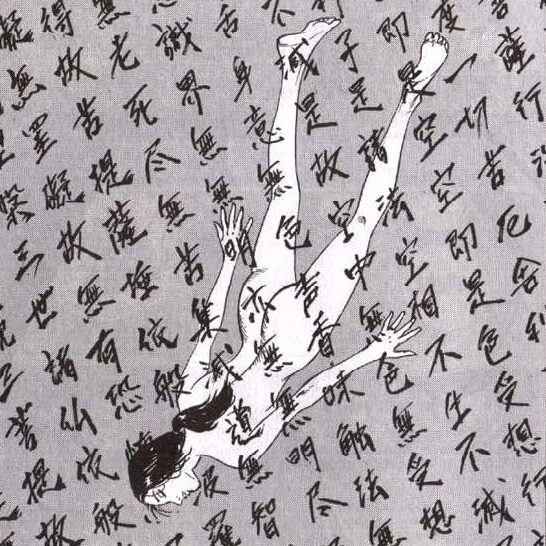 薩行
度一切苦厄舍利
即是空空即是色受想行
子是諸法空相不生不滅
減是故空中無色無受想
舌身意無色聲香味觸法無
識界無無明亦無無明尽
無老死尽無苦集滅道無智
得故菩提薩埵依般波羅
礙無罣礙故無有恐怖
槃三世諸仏依般
三菩提故